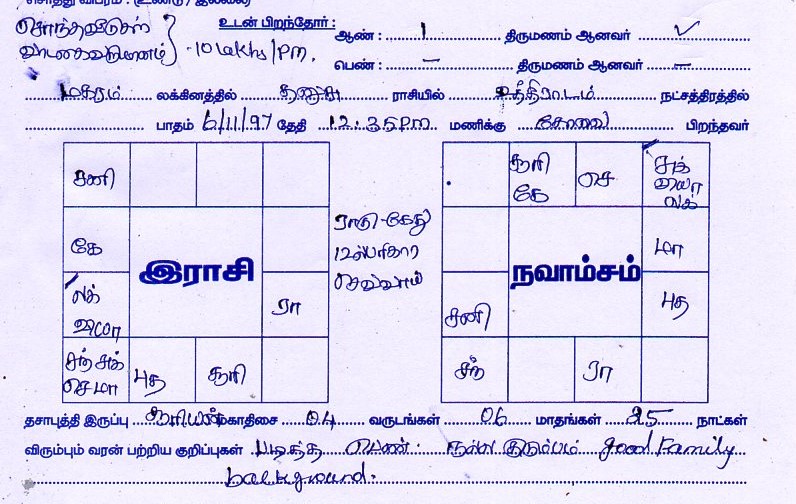 சொத்து விபரம் : (உண்டு / இல்லை)
சொந்தவீடுகள்
வாடகைவருமானம் } -10 Lakhs/PM.
உடன் பிறந்தோர் : ஆண் : 1 திருமணம் ஆனவர் ✓
பெண் : – திருமணம் ஆனவர் –
மகரம் லக்கினத்தில் தனுசு ராசியில் உத்திராடம் நட்சத்திரத்தில்
பாதம் 6/11/97 தேதி 12:35PM மணிக்கு கோவை பிறந்தவர்
சனி
கே
லக்
சந் சுக்
செ மா
புத
சூரி
ரா
இராசி
ராகு-கேது
பரிகார
செவ்வாய்
சூரி
கே
செ
சுக்
லக்
மா
புத
சனி
சந்
ரா
நவாம்சம்
தசாபுத்தி இருப்பு சூரியன் மகாதிசை 04 வருடங்கள் 06 மாதங்கள் 25 நாட்கள்
விரும்பும் வரன் பற்றிய குறிப்புகள் படித்த பெண். நல்ல குடும்பம் good Family
background.